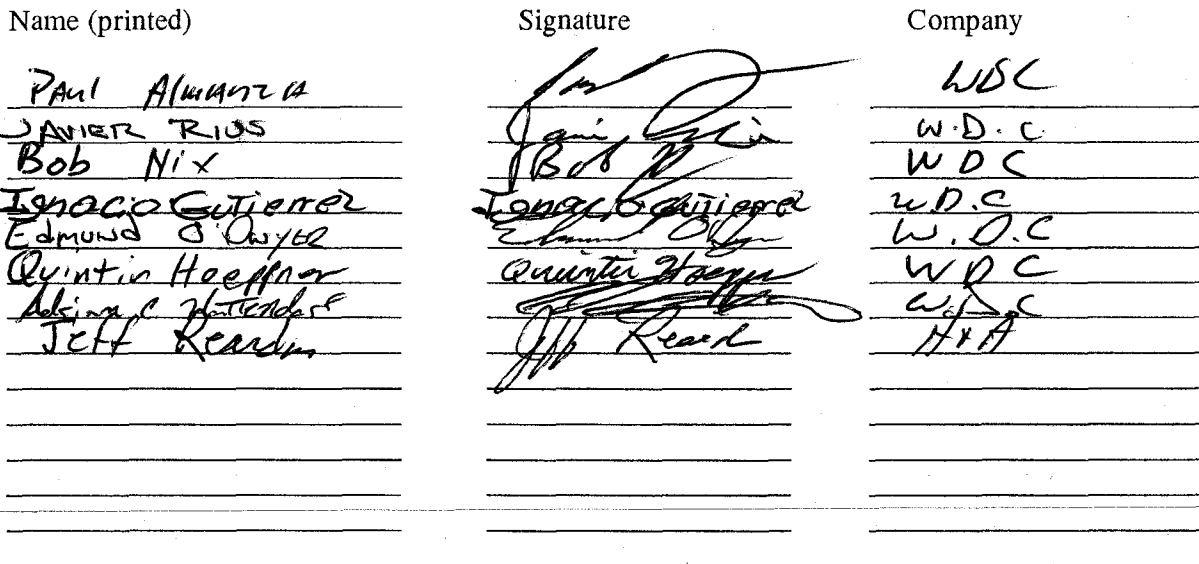 Name (printed) Signature Company
PAUL Almanza WDC
JAVIER RIOS W.D.C
Bob Nix Bob N WDC
Ignacio Gutierrez Ignacio Gutierrez W.D.C
Edmund O'Dwyer W.D.C
Quintin Hoeppner Quintin Hoepp WDC
Adrian C Hattendorf W.D.C
Jeff Reardon Jeff Reard H+A